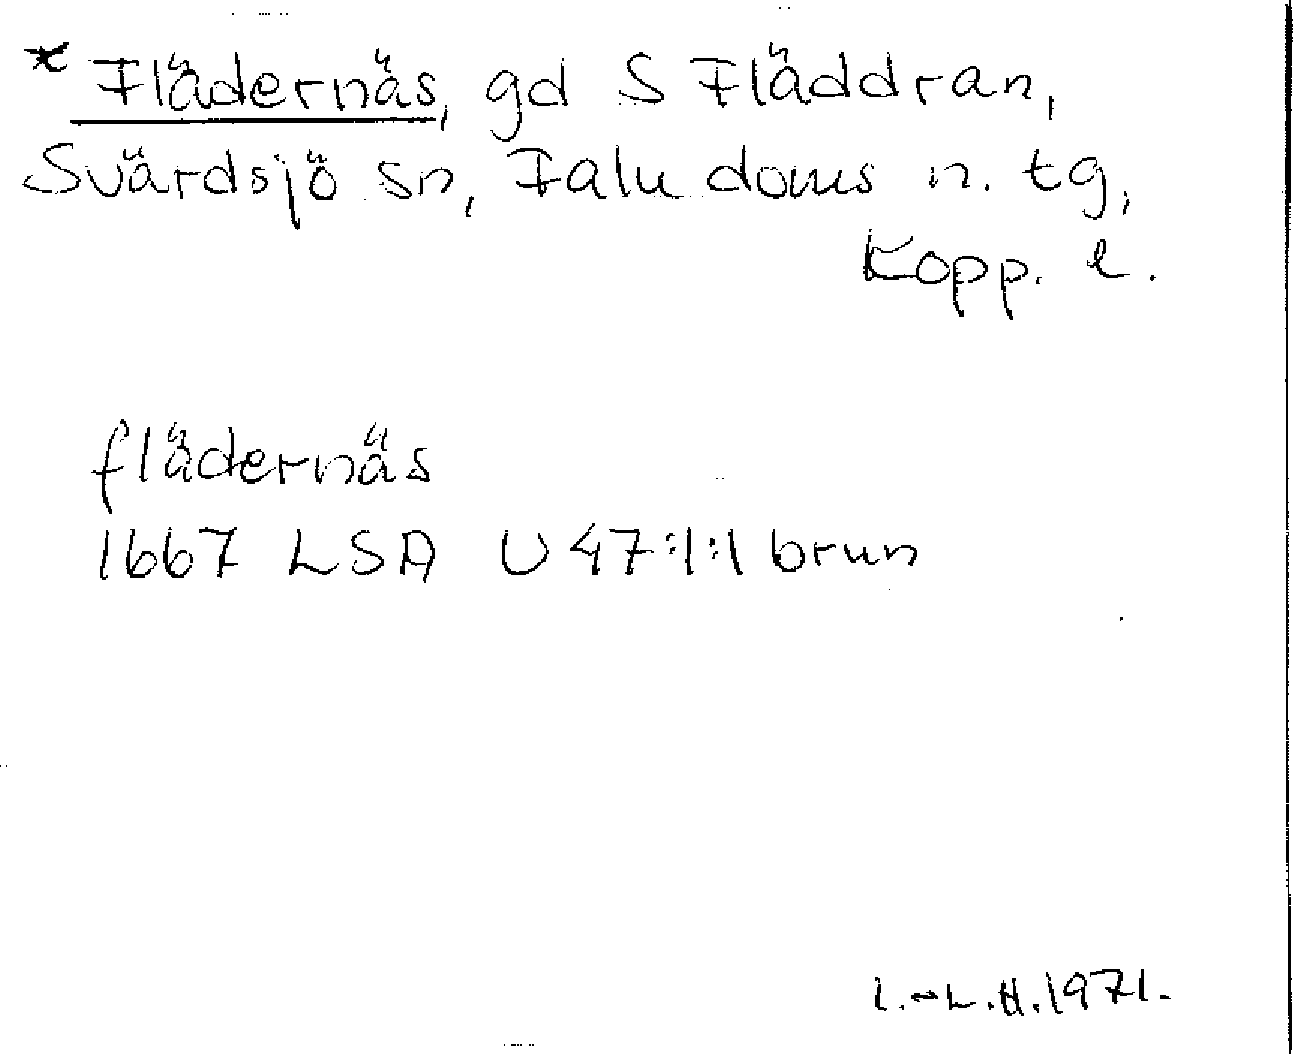 * Flädernäs, gd S Fläddran,
Svärdsjö sn, Falu doms n. tg,
Kopp. l.
flädernäs
1667 LSA U 47:1:1 brun
I.-L.H.1971.